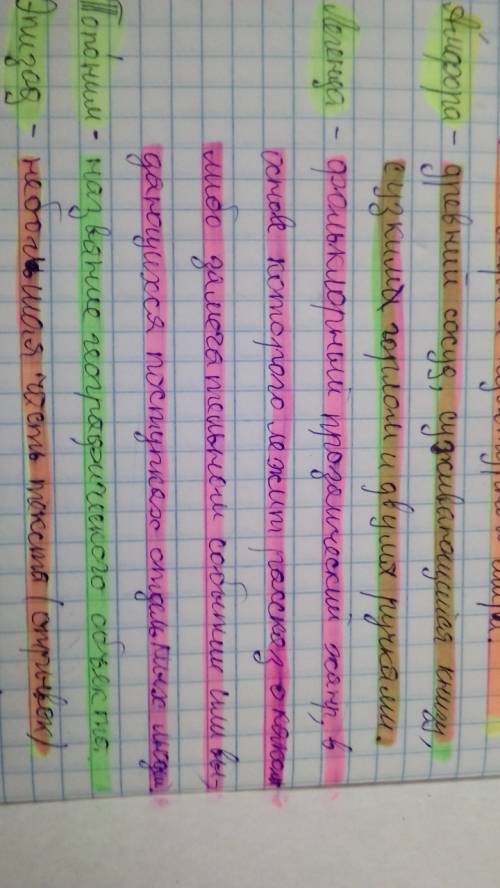 Амфора - древний сосуд, суживающийся книзу,
с узким горлом и двумя ручками.
Легенда - фольклорный прозаический жанр, в
основе которого лежит рассказ о каком
либо замечательном событии или вы-
дающихся поступках отдельных людей.
Топоним - название географического объекта.
Эпизод - небольшая часть текста (отрывок)